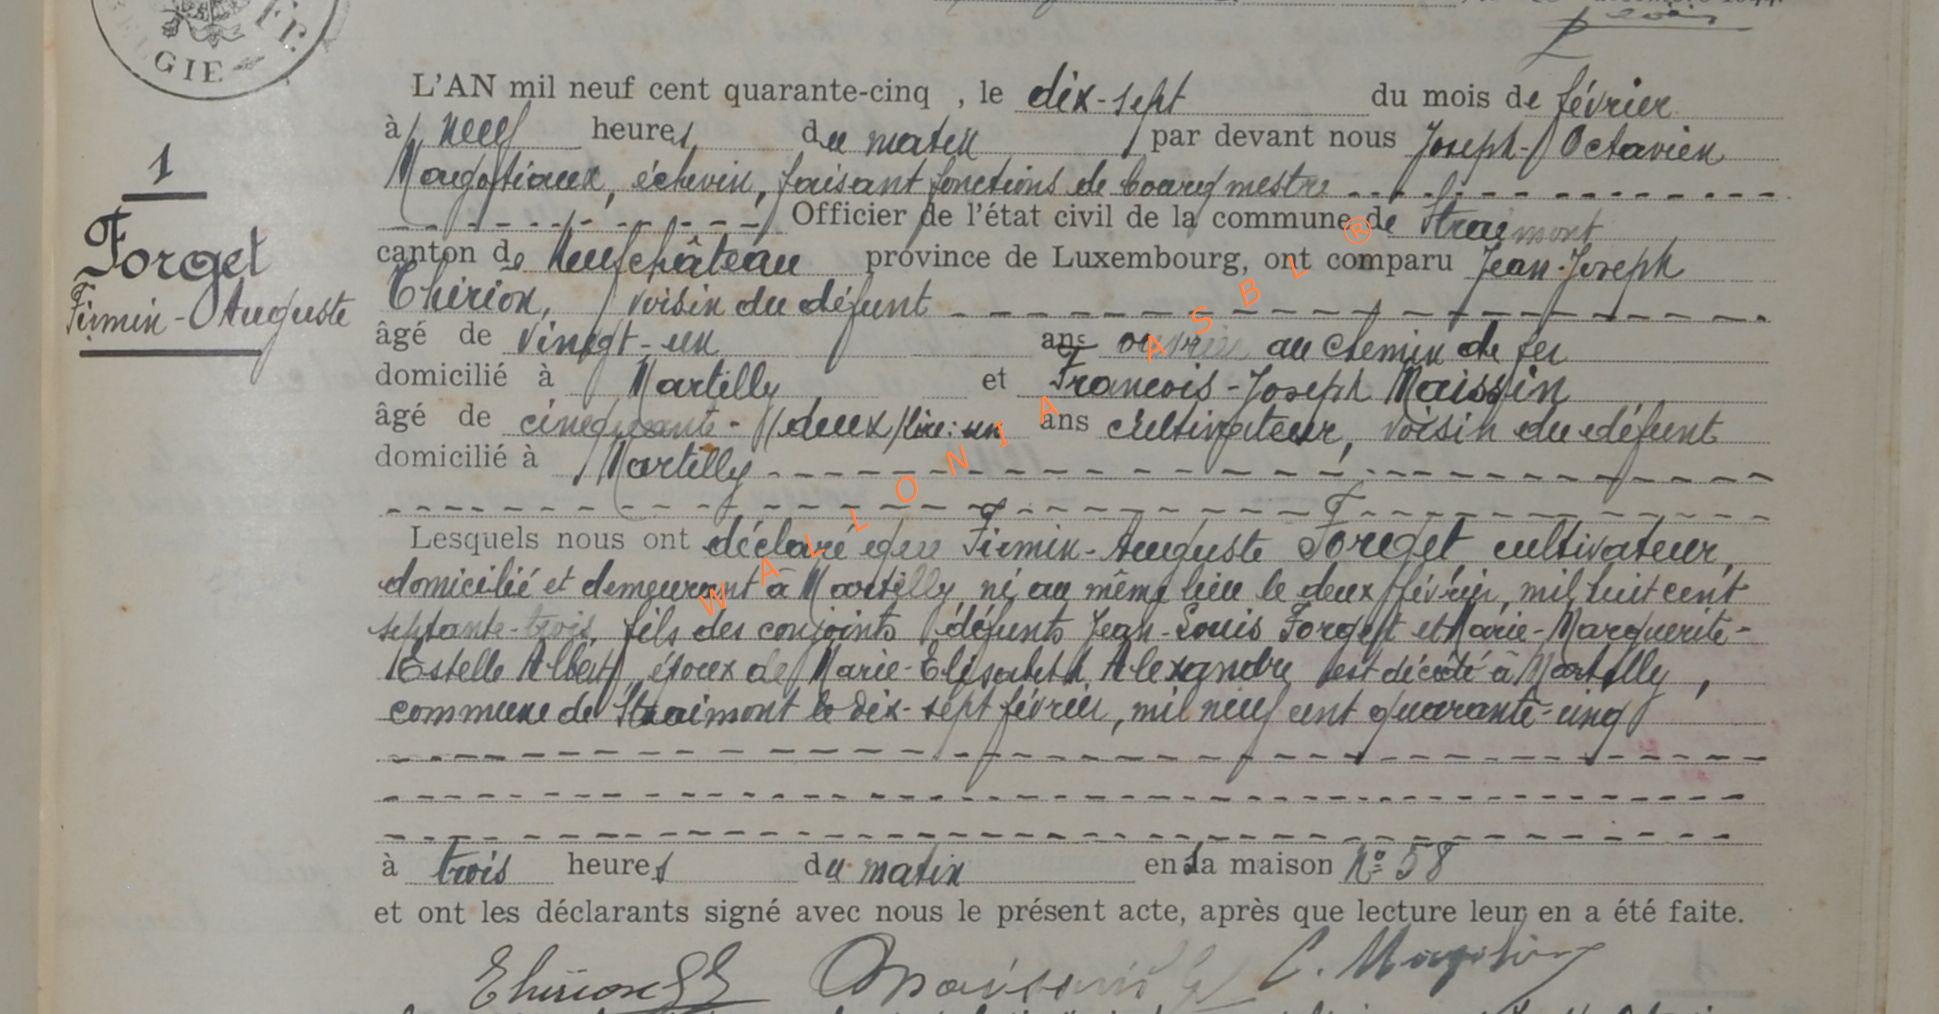 GIE
L'AN mil neuf cent quarante-cinq , le dix-sept du mois de février
à neuf heures du matin par devant nous Joseph-Octavien
1
Magotiaux, échevin, faisant fonctions de bourgmestre
Officier de l'état civil de la commune de Straimont
Forget
Firmin-Auguste
canton de Neufchâteau province de Luxembourg, ont comparu Jean-Joseph
Thirion, voisin du défunt
âgé de vingt-un ans ouvrier au chemin de fer
domicilié à Martilly et François-Joseph Maissin
âgé de cinquante-deux/lire: un ans cultivateur, voisin du défunt
domicilié à Martilly
Lesquels nous ont déclaré que Firmin-Auguste Forget cultivateur,
domicilié et demeurant à Martilly né au même lieu le deux février, mil huit cent
septante-trois, fils des conjoints défunts Jean-Louis Forget et Marie-Marguerite-
Estelle Albert, époux de Marie-Elisabeth Alexandre est décédé à Martilly,
commune de Straimont le dix-sept février, mil neuf cent quarante-cinq
à trois heures du matin en la maison No 58
et ont les déclarants signé avec nous le présent acte, après que lecture leur en a été faite.
Thirion Maissin
WALLONIA ASBL ®